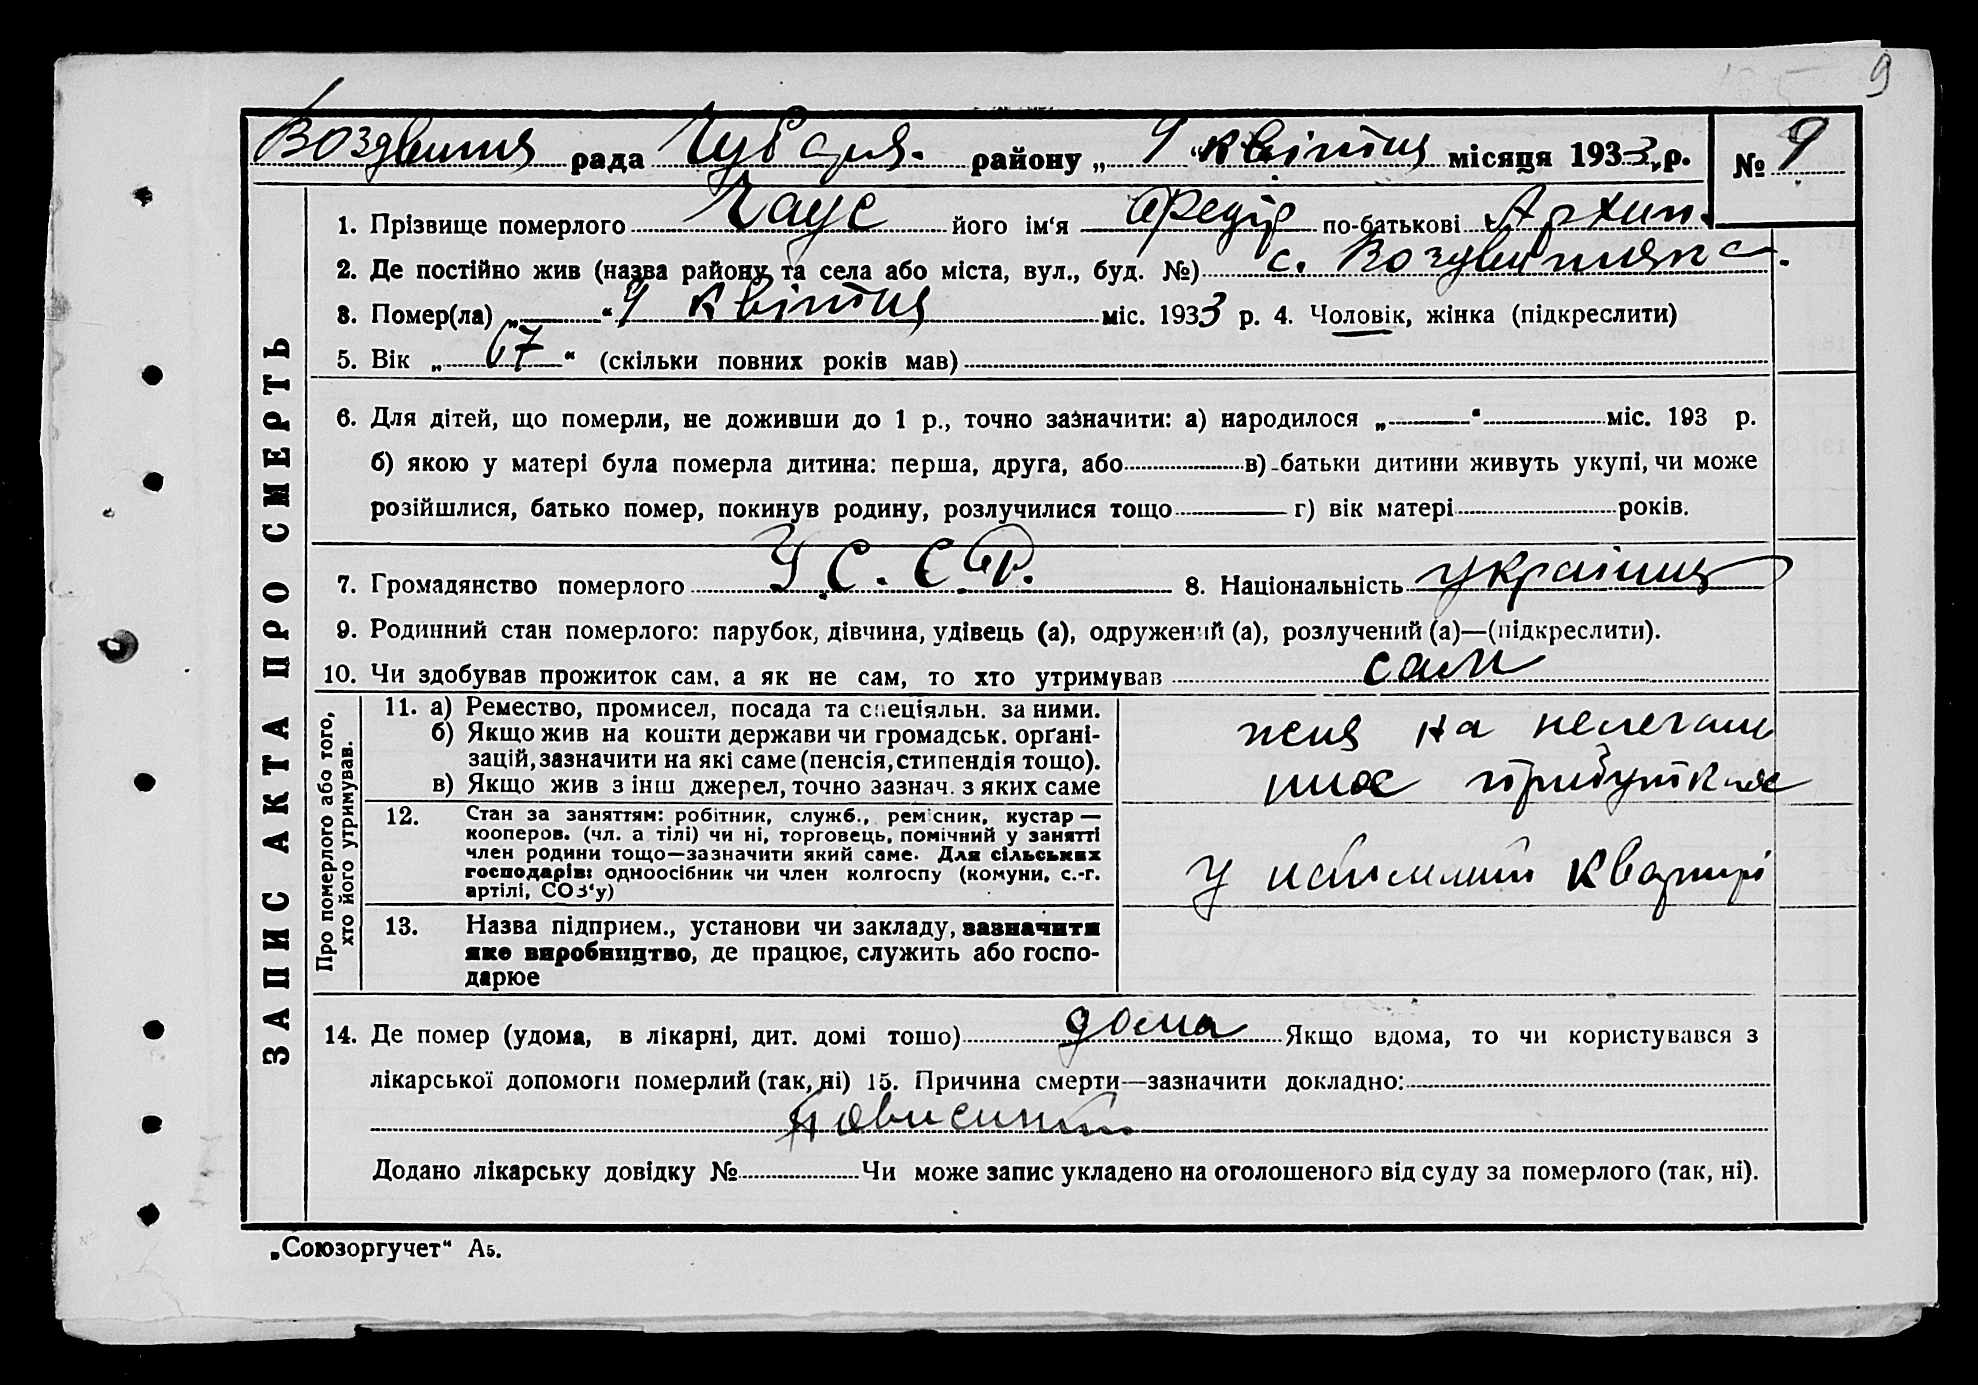 9
Воздвиння рада Чубаря. району „ 9 “ квітня місяця 1933 р. № 9
ЗАПИС АКТА ПРО СМЕРТЬ
1. Прізвище померлого Чаус його ім‘я Федір по-батькові Архип.
2. Де постійно жив (назва району та села або міста, вул., буд. №) с.
3. Помер(ла) „ “ 9 квітня міс. 1933 р. 4. Чоловік, жінка (підкреслити)
5. Вік „ 67 “ (скільки повних років мав)
6. Для дітей, що померли, не доживши до 1 р., точно зазначити: а) народилося „ “ міс. 193 р.
б) якою у матері була померла дитина: перша, друга, або в) батьки дитини живуть укупі, чи може
розійшлися, батько помер, покинув родину, розлучилися тощо г) вік матері років.
7. Громадянство померлого У.С.С.Р. 8. Національність українця
9. Родинний стан померлого: парубок, дівчина, удівець (а), одружений (а), розлучений (а)—(підкреслити).
10. Чи здобував прожиток сам, а як не сам, то хто утримував сам
Про померлого або того,
хто його утримував.
11. а) Ремество, промисел, посада та спеціяльн. за ними.
б) Якщо жив на кошти держави чи громадськ. органі-
зацій, зазначити на які саме (пенсія, стипендія тощо).
в) Якщо жив з інш джерел, точно зазнач. з яких саме
на
прибутках
12. Стан за заняттям: робітник, служб., ремісник, кустар —
кооперов. (чл. а тілі) чи ні, торговець, помічний у занятті
член родини тощо—зазначити який саме. Для сільських
господарів: одноосібник чи член колгоспу (комуни, с.-г.
артілі, СОЗ‘у)
у квартирі
13. Назва підприєм., установи чи закладу, зазначити
яке виробництво, де працює, служить або госпо-
дарює
14. Де помер (удома, в лікарні, дит. домі тошо) дома Якщо вдома, то чи користувався з
лікарської допомоги померлий (так, ні) 15. Причина смерти—зазначити докладно:
Додано лікарську довідку № Чи може запис укладено на оголошеного від суду за померлого (так, ні).
„Союзоргучет“ А5.